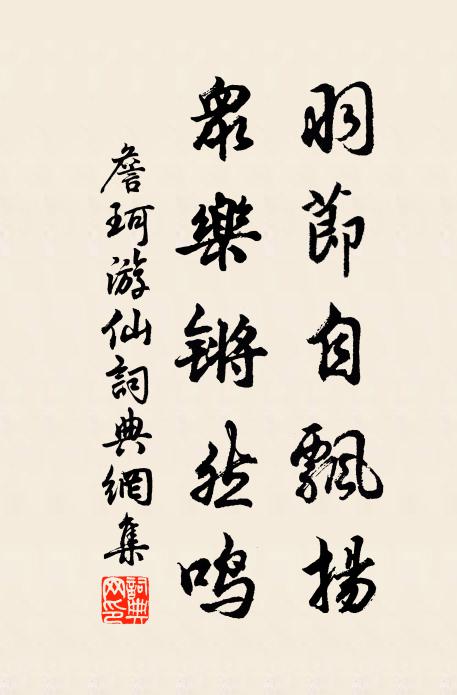 羽節自飄揚
眾樂锵然鸣
詹珂游仙詞典網集
詞典网印